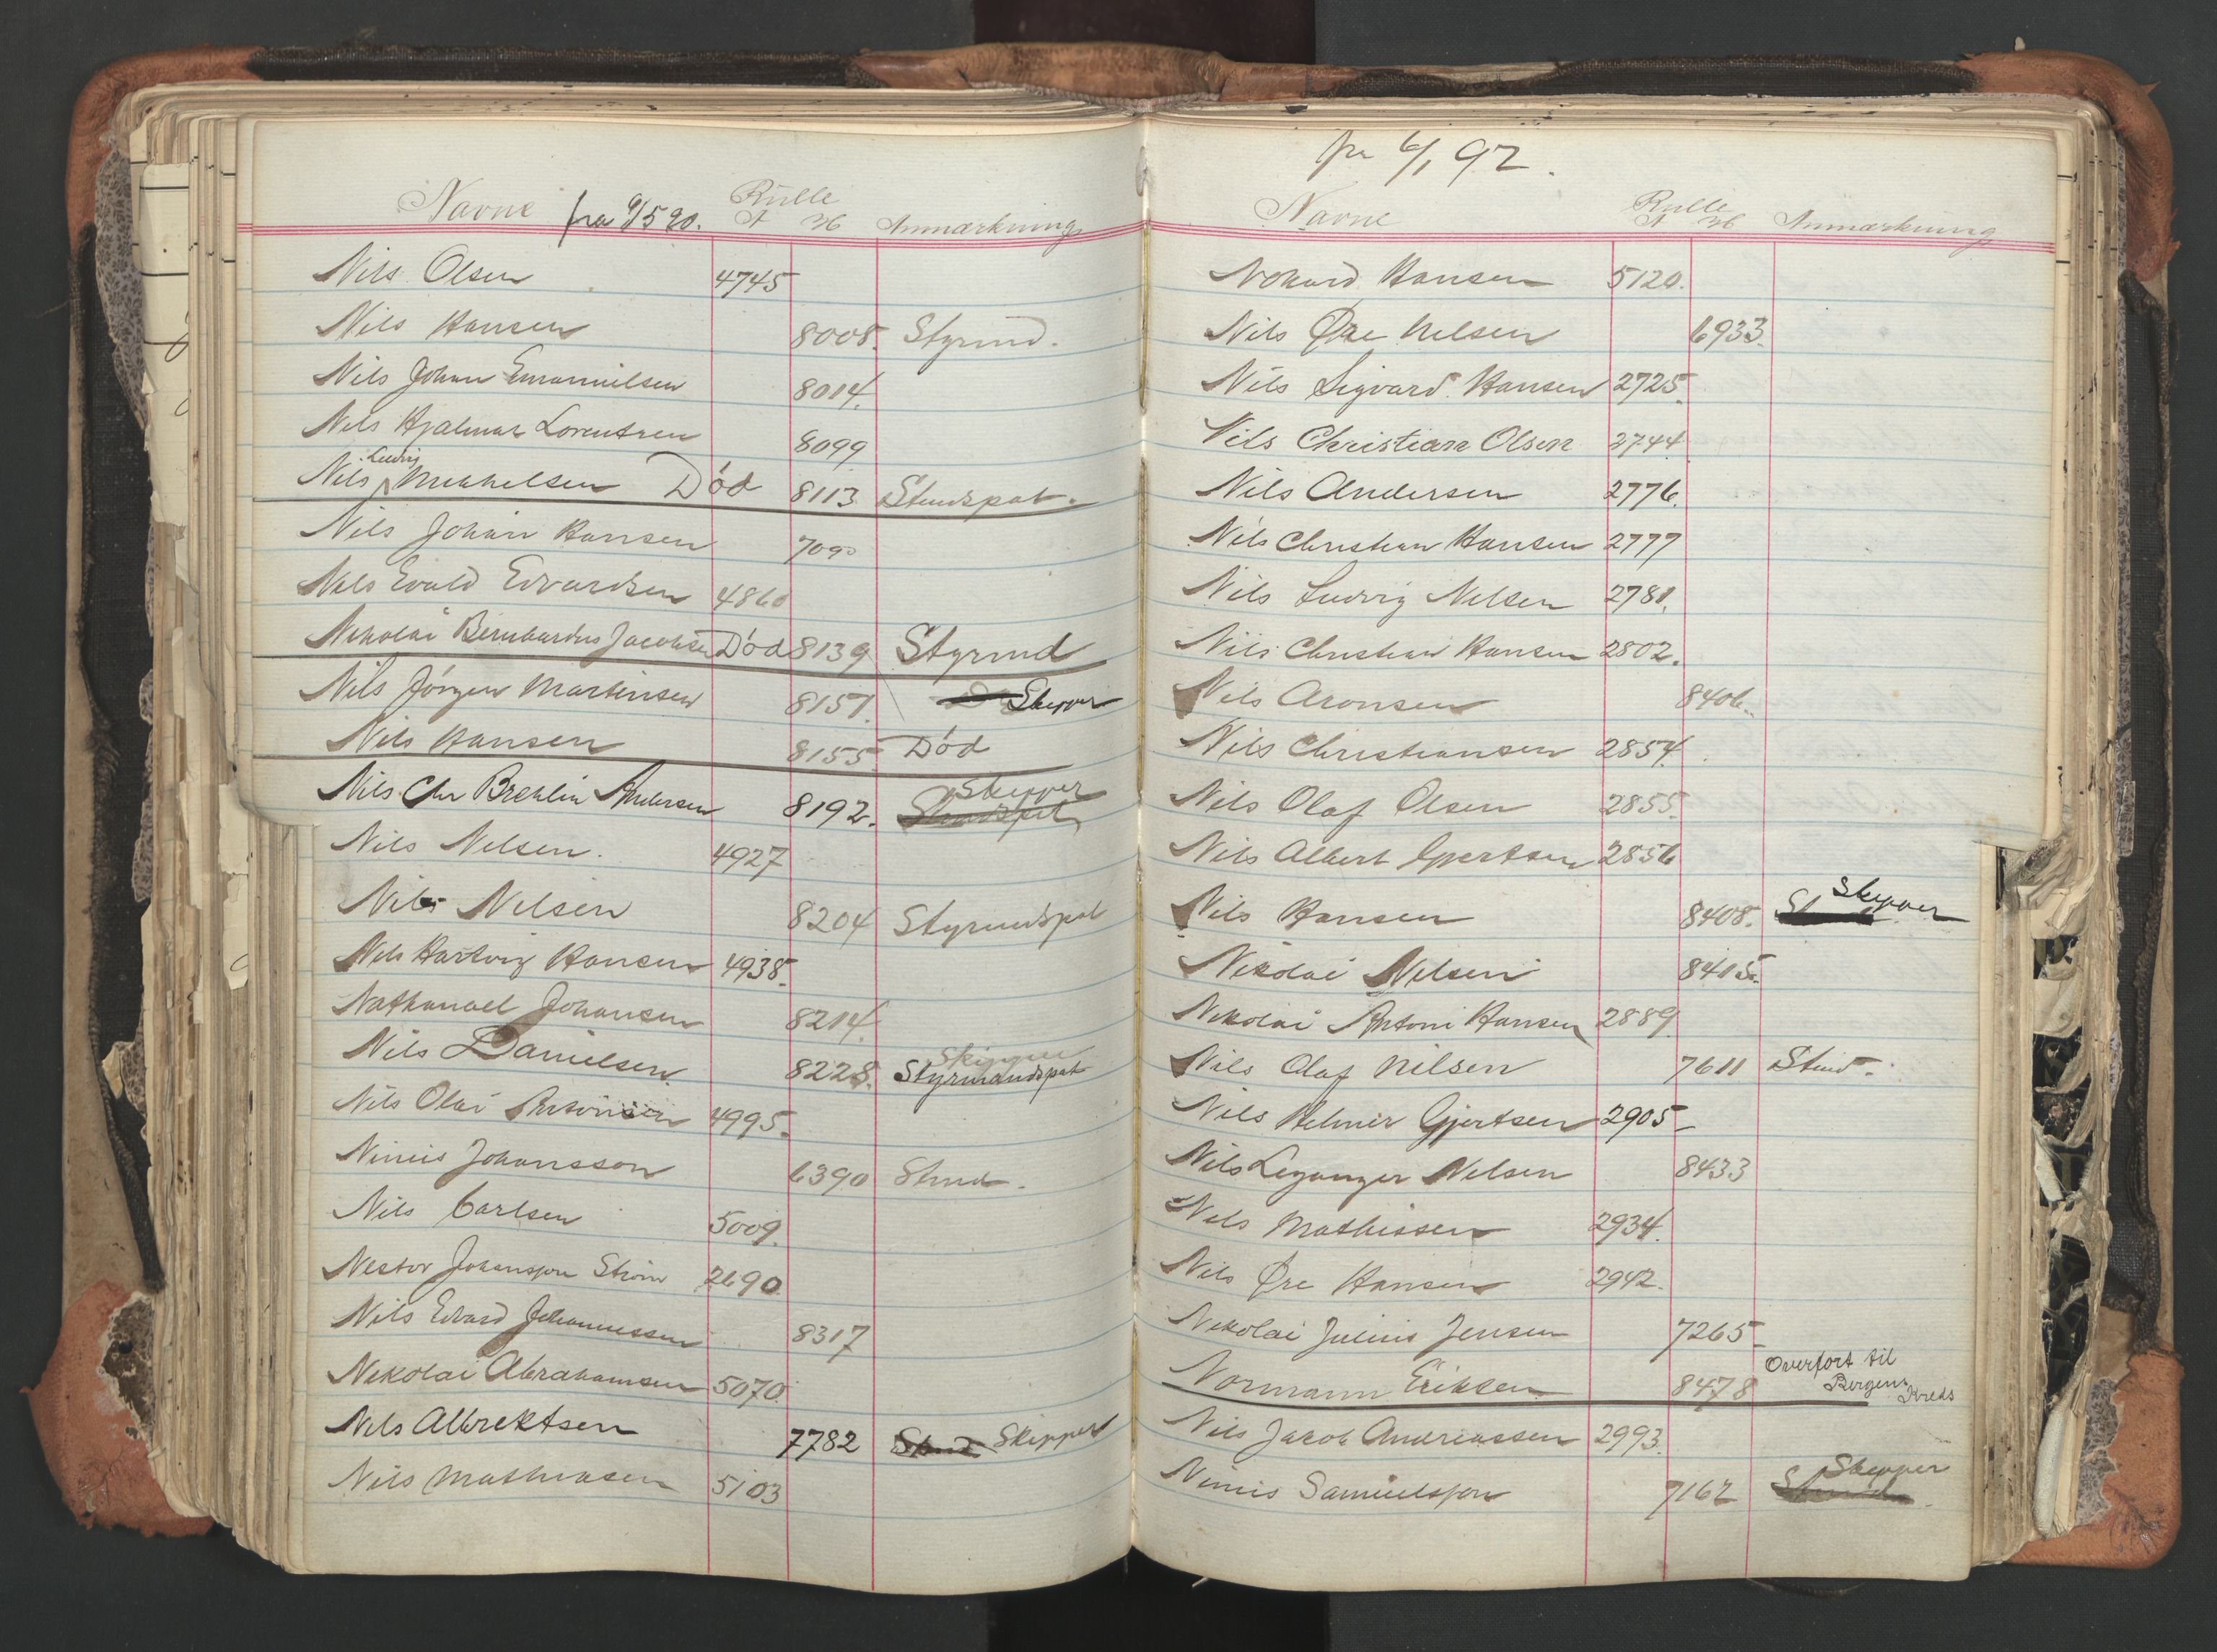 Navne fra 9/5 90. Rulle A H Anmærkning
Nils Olsen 4745
Nils Hansen 8008. Styrmd.
Nils Johan Emanuelsen 8014.
Nils Hjalmar Lorentzen 8099
Nils Ludvig Mikkelsen Död 8113 Stmdspat.
Nils Johan Hansen 7090
Nils Evald Edvardsen 4860
Nikolai Bernhardus Jacobsen Död 8139 Styrmd
Nils Jörgen Martinsen 8151. Skipper
Nils Hansen 8155 Död
Nils Chr Brehlin Andersen 8192. Skipper Stmdspat
Nils Nilsen. 4927
Nils Nilsen 8204 Styrmdspat
Nils Hartvig Hansen 4938.
Nathanael Johansen 8214.
Nils Danielsen. 8228. Skipper Styrmandspat
Nils Olai Antonsen 4995.
Ninius Johansson 6390 Stmd.
Nils Carlsen 5009.
Nestor Johansson Ström 2690
Nils Edvard Johannessen 8317
Nikolai Abrahamsen 5070.
Nils Albrektsen 7782 Stmd Skipper
Nils Mathiasen 5103
fra 6/1 92.
Navne Rulle A H Anmærkning
Nokard Hansen 5120.
Nils Øre Nilsen 6933.
Nils Sigvard Hansen 2725.
Nils Christian Olsen 2744
Nils Andersen 2776.
Nils Christian Hansen 2777
Nils Ludvig Nilsen 2781.
Nils Christian Hansen 2802.
Nils Aronsen 8406.
Nils Christiansen 2854.
Nils Olaf Olsen 2855.
Nils Albert Gjertsen 2856
Nils Hansen 8408. Skipper
Nikolai Nilsen 8415.
Nikolai Antoni Hansen 2889.
Nils Olaf Nilsen 7611 Stmd.
Nils Helmer Gjertsen 2905
Nils Leganger Nilsen 8433
Nils Mathissen 2934.
Nils Øre Hansen 2942.
Nikolai Julius Jensen 7265
Normann Eriksen 8478 Overfort til Bergens Kreds
Nils Jacob Andreassen 2993.
Ninis Samuelsson 7162 Skipper